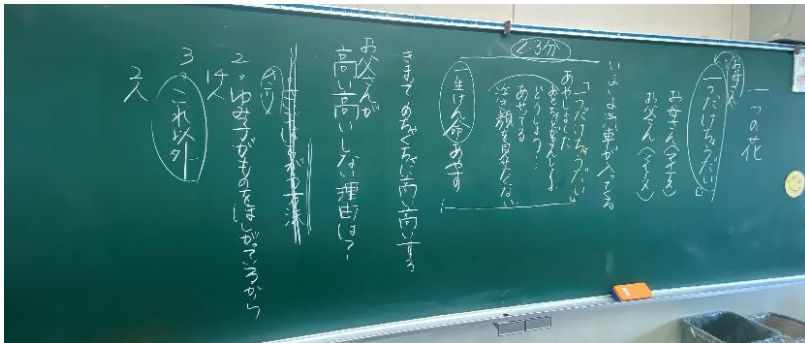 一つの花
お母さん
「一つだけちょうだい」
お母さん(マイナス)
お父さん(マイナス)
いよいよ汽車が入ってくる
2、3分
「一つだけちょうだい」
あやしました
どうしよう…
あやせる
泣き顔を見せたくない
一生けん命あやす
きまってめちゃくちゃに高い高いする
お父さんが
高い高いしない理由は?
2. ゆみ子がものをほしがっているから
14人
3. これ以外
2人